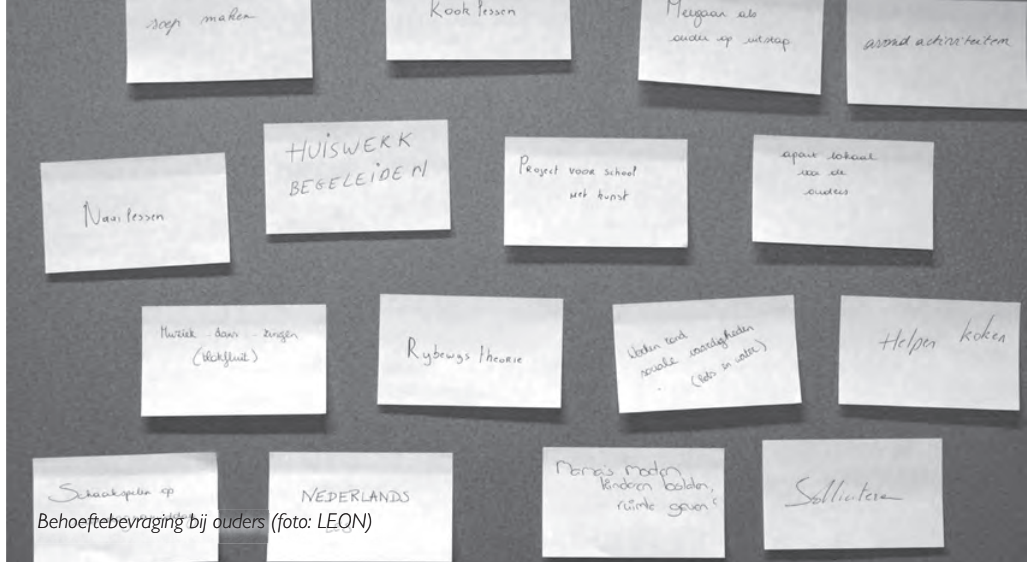 soep maken
Kook lessen
Meegaan als
ouder op uitstap
avond activiteiten
Naai lessen
HUISWERK
BEGELEIDEN
Project voor school
met kunst
apart lokaal
voor de
ouders
Muziek - dans - zingen
(blokfluit)
Rybewys theorie
rond
sociale vaardigheden
(rots in water)
Helpen koken
Schaakspelen op
NEDERLANDS
Mama's moeten
kinderen
ruimte geven!
Solliciteren
Behoeftebevraging bij ouders (foto: LEON)